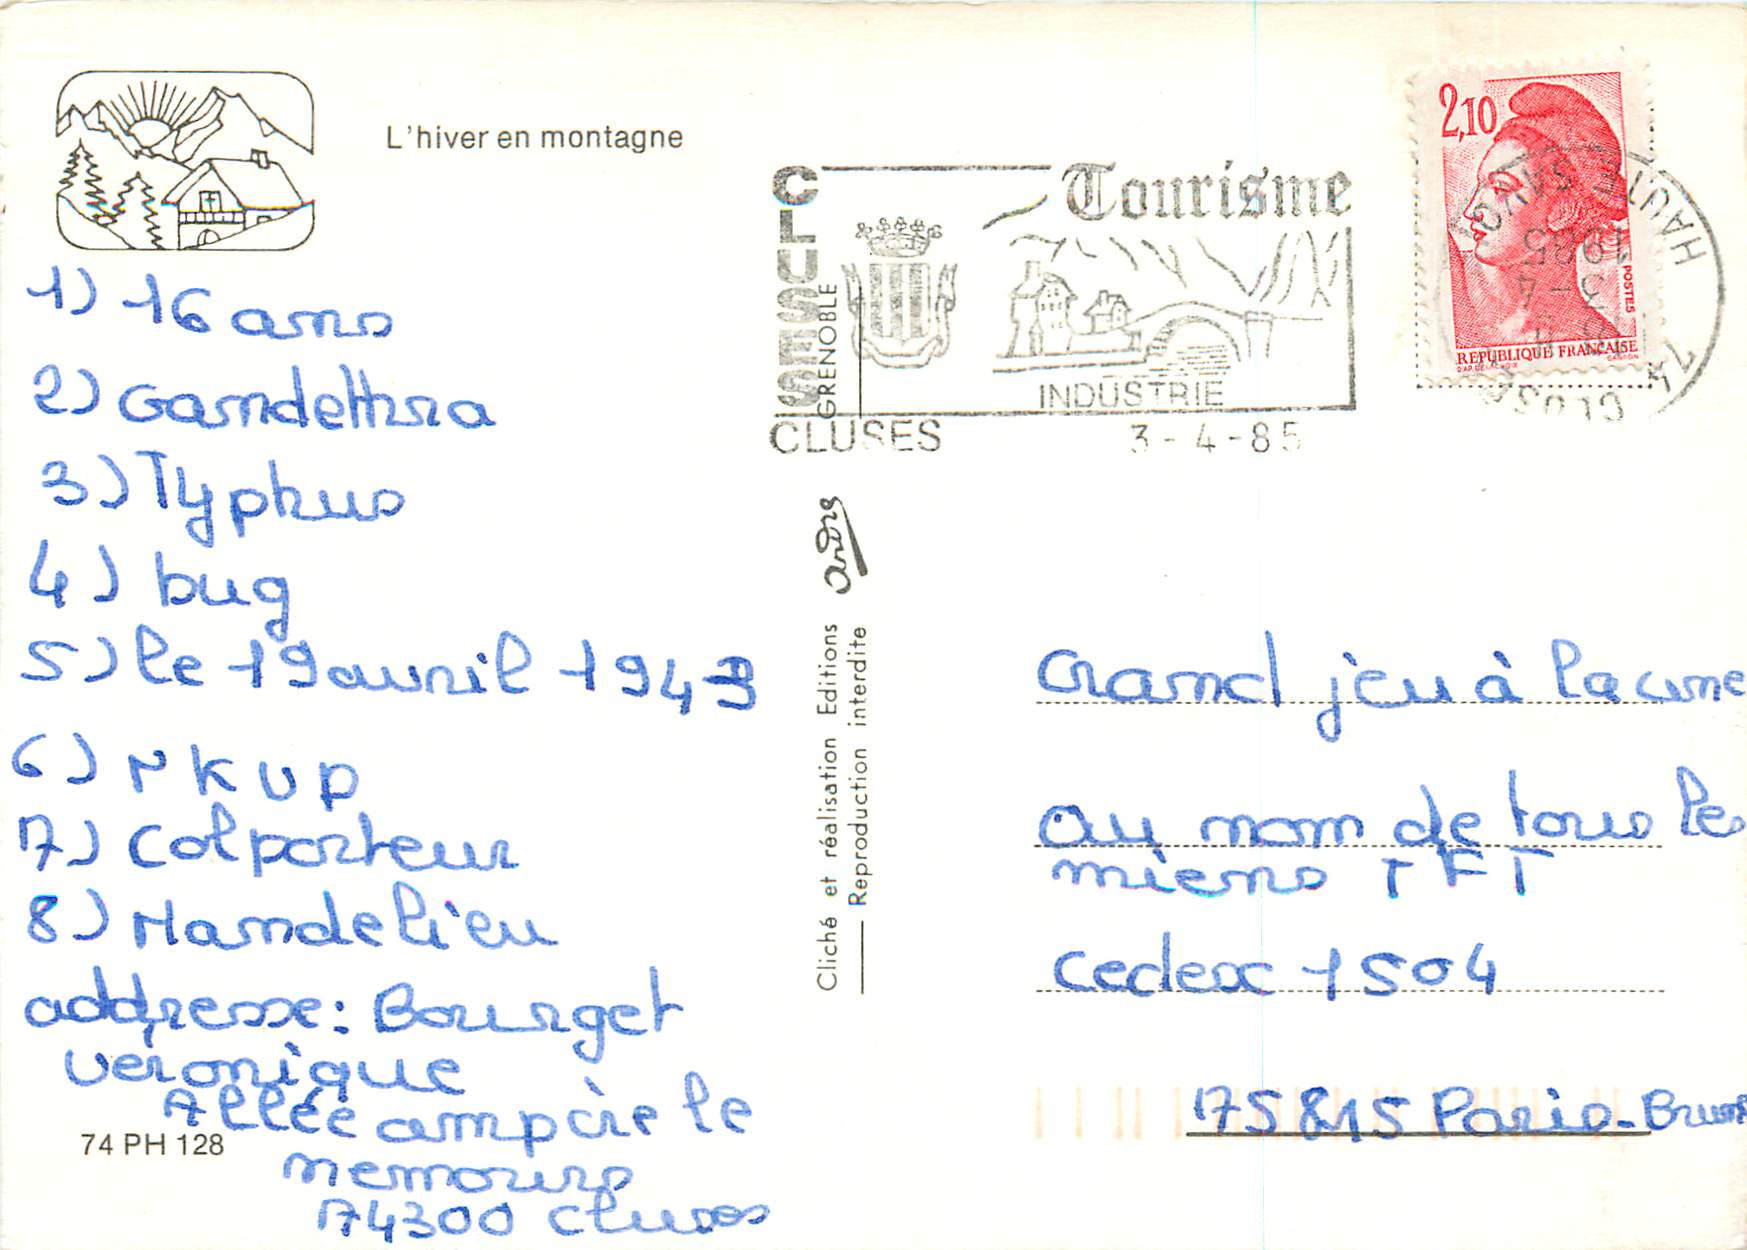 L'hiver en montagne
1) 16 ans
2) Gamdethra
3) Typhus
4) bug
5) le 19 avril 1943
6) MKUP
7) Colporteur
8) Mandelieu
addresse: Bourget
véronique
Allée ampère le
nemours
74300 Cluses
74 PH 128
CLUSES
GRENOBLE
Tourisme
INDUSTRIE
CLUSES 3-4-85
andre
Cliché et réalisation Editions
Reproduction interdite
2,10
POSTES
REPUBLIQUE FRANÇAISE
D'AP. DELACROIX GANDON
74 CLUSES
HAUTE
1985
Grand jeu à la une
au nom de tous les
miens TF1
Cedex 1504
75815 Paris-Brune